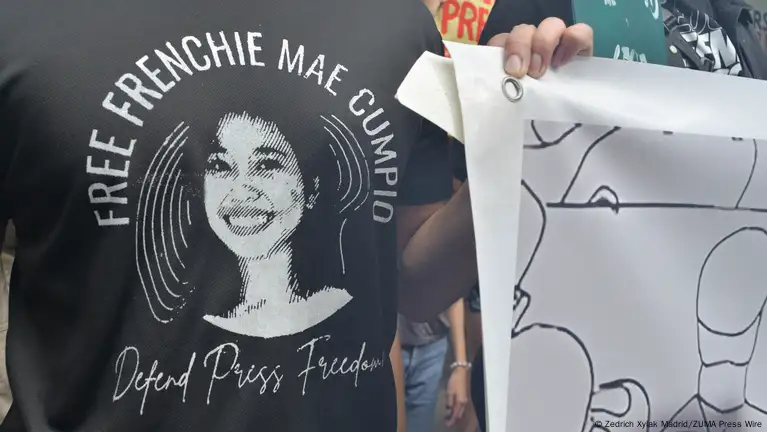 FREE FRENCHIE MAE CUMPIO
Defend Press Freedom!
PRE
© Zedrich Xylak Madrid/ZUMA Press Wire